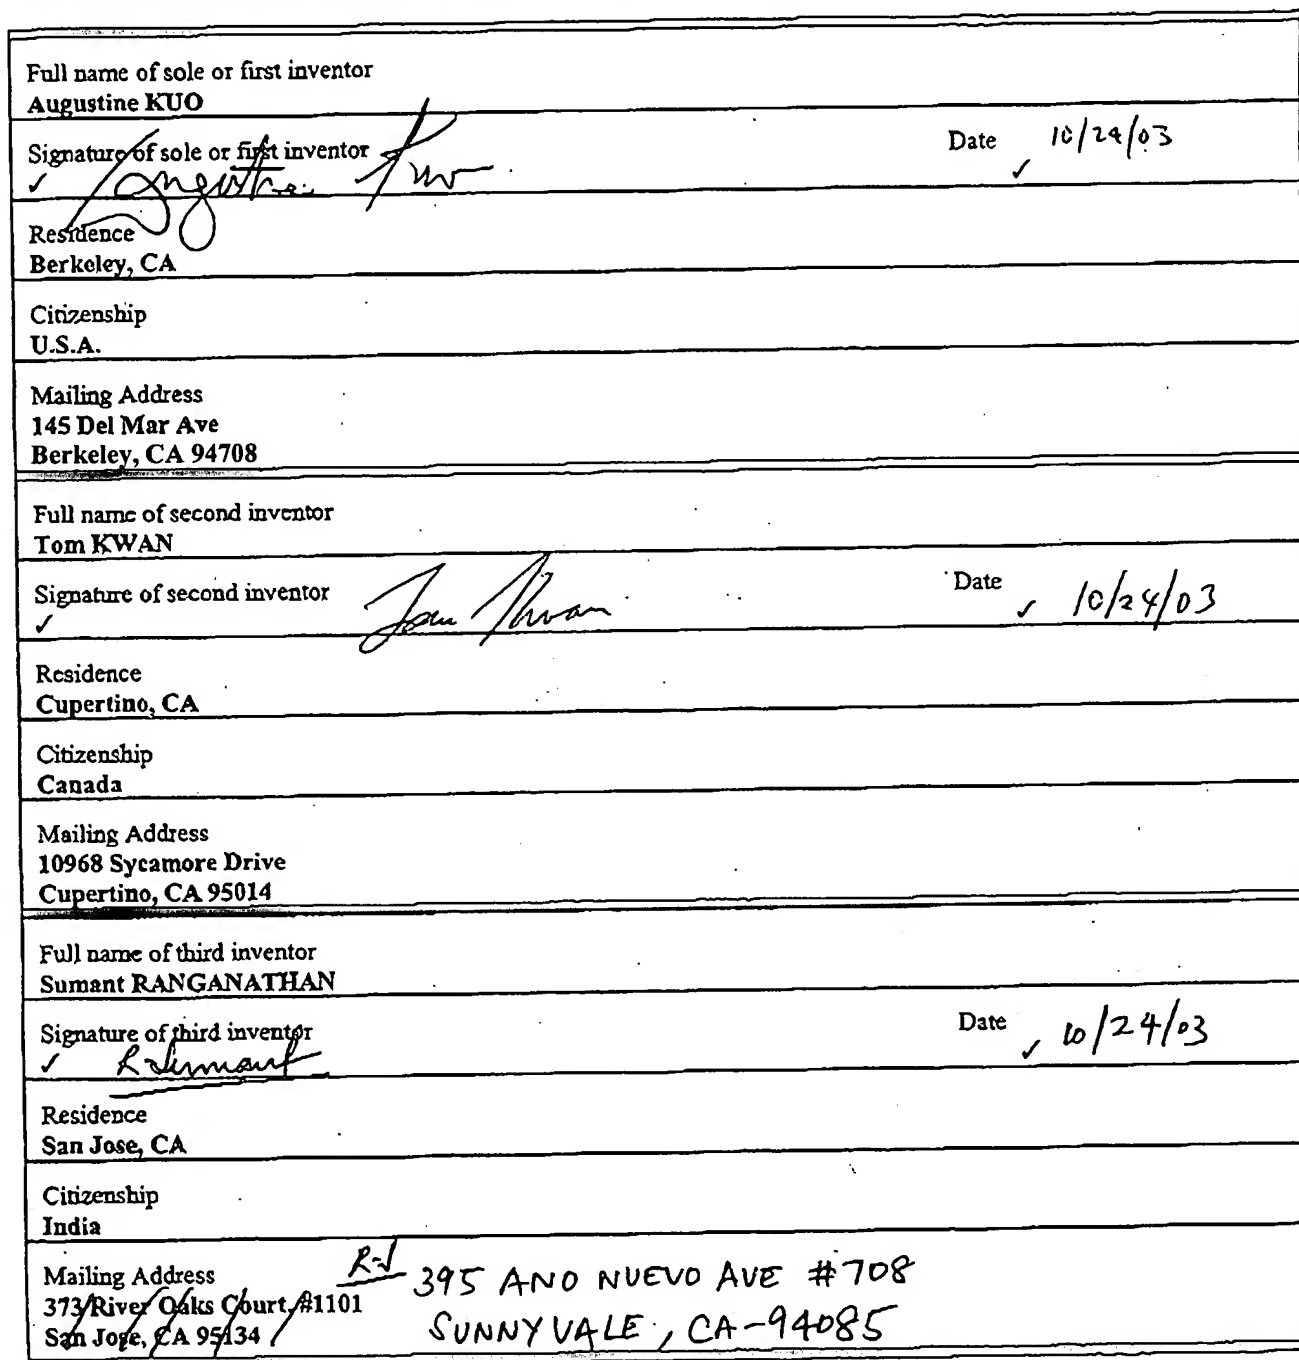 Full name of sole or first inventor
Augustine KUO
Signature of sole or first inventor Augustine Kuo Date 10/24/03
✓ ✓
Residence
Berkeley, CA
Citizenship
U.S.A.
Mailing Address
145 Del Mar Ave
Berkeley, CA 94708
Full name of second inventor
Tom KWAN
Signature of second inventor Tom Kwan Date 10/24/03
✓ ✓
Residence
Cupertino, CA
Citizenship
Canada
Mailing Address
10968 Sycamore Drive
Cupertino, CA 95014
Full name of third inventor
Sumant RANGANATHAN
Signature of third inventor Date 10/24/03
✓ R Sumant ✓
Residence
San Jose, CA
Citizenship
India
Mailing Address 395 ANO NUEVO AVE #708
373 River Oaks Court, #1101
San Jose, CA 95134 SUNNYVALE, CA-94085